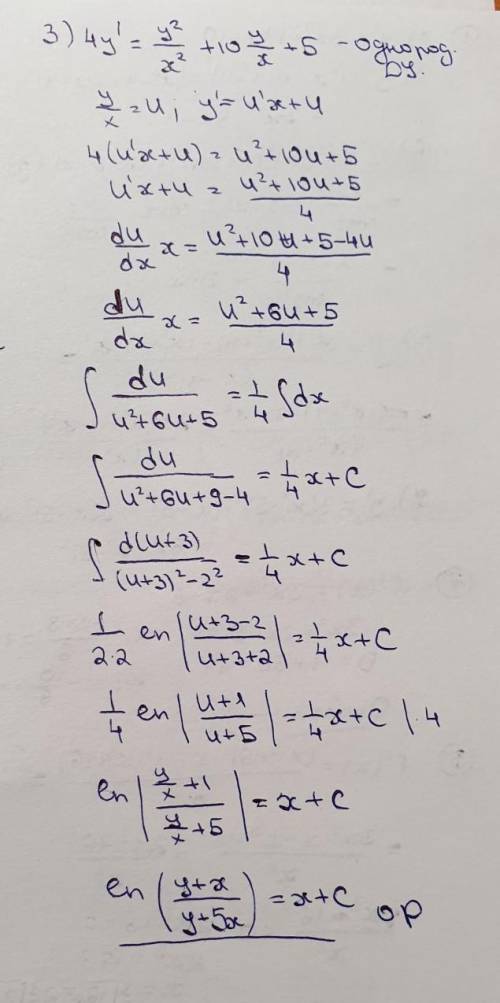 3) 4y' = y²/x² + 10 y/x + 5 - однород. ДУ.
y/x = u, y' = u'x + u
4(u'x + u) = u² + 10u + 5
u'x + u = (u² + 10u + 5)/4
du/dx x = (u² + 10u + 5 - 4u)/4
du/dx x = (u² + 6u + 5)/4
∫ du/(u² + 6u + 5) = 1/4 ∫dx
∫ du/(u² + 6u + 9 - 4) = 1/4 x + C
∫ d(u+3)/((u+3)² - 2²) = 1/4 x + C
1/(2·2) ln |(u+3-2)/(u+3+2)| = 1/4 x + C
1/4 ln |(u+1)/(u+5)| = 1/4 x + C |·4
ln |(y/x + 1)/(y/x + 5)| = x + C
ln ((y+x)/(y+5x)) = x + C ОР